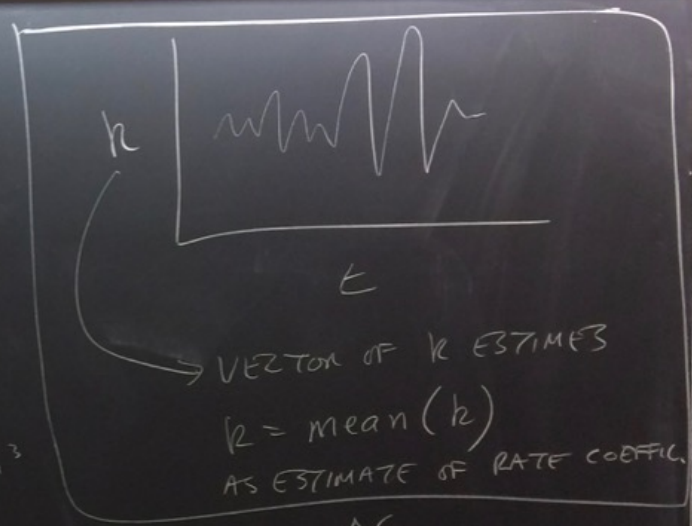 k
t
VECTOR OF k ESTIMES
k = mean (k)
AS ESTIMATE OF RATE COEFFIC.
3